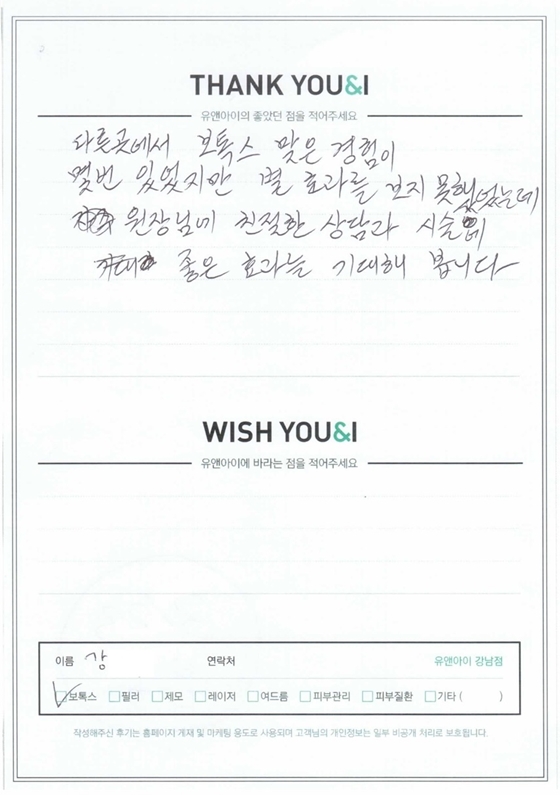 THANK YOU&I
유앤아이의 좋았던 점을 적어주세요
다른곳에서 보톡스 맞은 경험이
몇번 있었지만 별 효과를 보지 못했었는데
원장님에 친절한 상담과 시술에
좋은 효과는 기대해 봅니다
WISH YOU&I
유앤아이에 바라는 점을 적어주세요
이름 강 연락처 유앤아이 강남점
보톡스 필러 제모 레이저 여드름 피부관리 피부질환 기타 ( )
작성해주신 후기는 홈페이지 게재 및 마케팅 용도로 사용되며 고객님의 개인정보는 일부 비공개 처리로 보호됩니다.